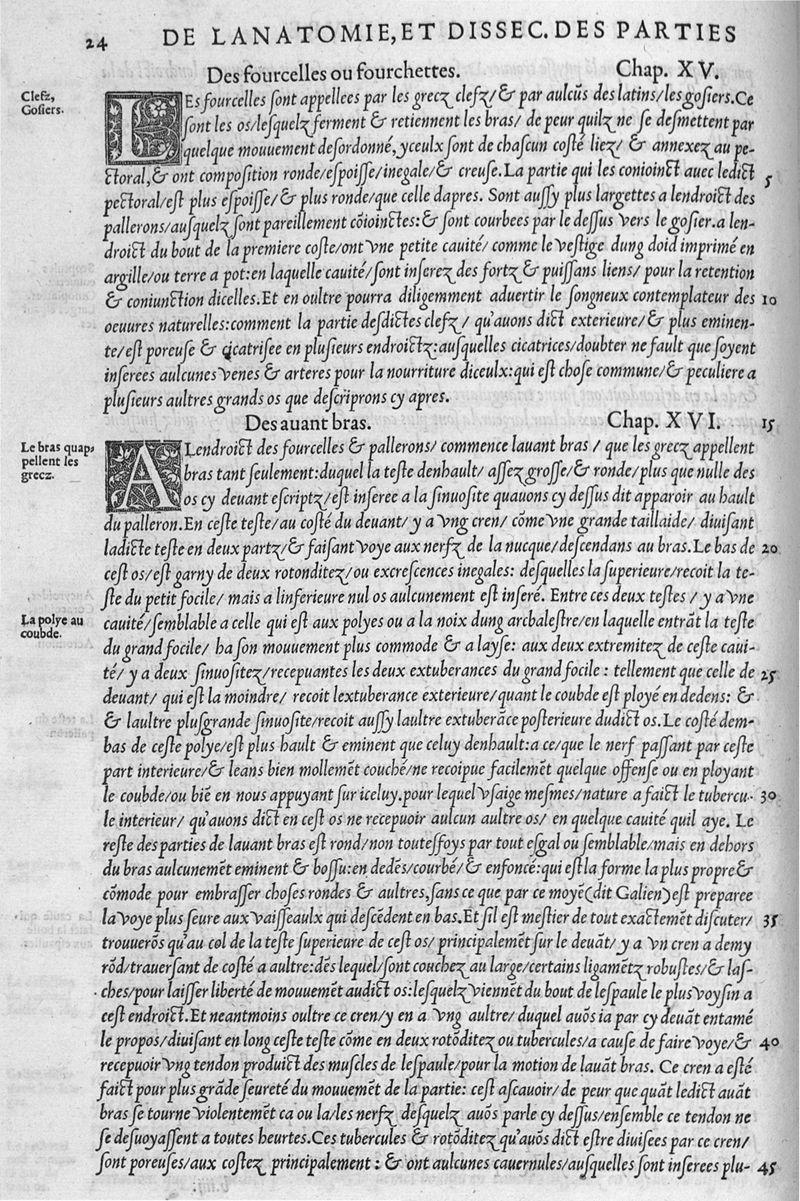 24 DE LANATOMIE, ET DISSEC. DES PARTIES
Des fourcelles ou fourchettes. Chap. XV.
Clefz,
Gosiers.
LEs fourcelles sont appellees par les grecz clefz/ & par aulcũs des latins/les gosiers.Ce
sont les os/lesquelz ferment & retiennent les bras/ de peur quilz ne se desmettent par
quelque mouuement desordonné, yceulx sont de chascun costé liez/ & annexez au pe-
ctoral,& ont composition ronde/espoisse/inegale/& creuse.La partie qui les conioinct auec ledict
pectoral/est plus espoisse/& plus ronde/que celle dapres. Sont aussy plus largettes a lendroict des 5
pallerons/ausquelz sont pareillement cõioinctes:& sont courbees par le dessus vers le gosier.a len-
droict du bout de la premiere coste/ont vne petite cauité/ comme le vestige dung doid imprimé en
argille/ou terre a pot:en laquelle cauité/sont inserez des fortz & puissans liens/ pour la retention
& coniunction dicelles.Et en oultre pourra diligemment aduertir le songneux contemplateur des 10
oeuures naturelles:comment la partie desdictes clefz/ qu'auons dict exterieure/& plus eminen-
te/est poreuse & cicatrisee en plusieurs endroictz:ausquelles cicatrices/doubter ne fault que soyent
inserees aulcunes venes & arteres pour la nourriture diceulx:qui est chose commune/& peculiere a
plusieurs aultres grands os que descriprons cy apres.
Des auant bras. Chap. XVI. 15
Le bras quap-
pellent les
grecz.
ALendroict des fourcelles & pallerons/ commence lauant bras / que les grecz appellent
bras tant seulement:duquel la teste denhault/ assez grosse/& ronde/plus que nulle des
os cy deuant escriptz/est inseree a la sinuosite quauons cy dessus dit apparoir au hault
du palleron.En ceste teste/au costé du deuant/ y a vng cren/ cõme vne grande taillaide/ diuisant
ladicte teste en deux partz/& faisant voye aux nerfz de la nucque/descendans au bras.Le bas de 20
cest os/est garny de deux rotonditez/ou excrescences inegales: desquelles la superieure/recoit la te-
ste du petit focile/ mais a linferieure nul os aulcunement est inseré. Entre ces deux testes / y a vne
La polye au
coubde.
cauité/semblable a celle qui est aux polyes ou a la noix dung arcbalestre/en laquelle entrãt la teste
du grand focile/ ha son mouuement plus commode & a layse: aux deux extremitez de ceste caui-
té/ y a deux sinuositez/recepuantes les deux extuberances du grand focile : tellement que celle de 25
deuant/ qui est la moindre/ recoit lextuberance exterieure/quant le coubde est ployé en dedens: &
& laultre plusgrande sinuosite/recoit aussy laultre extuberãce posterieure dudict os.Le costé dem-
bas de ceste polye/est plus hault & eminent que celuy denhault:a ce/que le nerf passant par ceste
part interieure/& leans bien mollemẽt couché/ne recoipue facilemẽt quelque offense ou en ployant
le coubde/ou biẽ en nous appuyant sur iceluy.pour lequel vsaige mesmes/nature a faict le tubercu- 30
le interieur/ qu'auons dict en cest os ne recepuoir aulcun aultre os/ en quelque cauité quil aye. Le
reste des parties de lauant bras est rond/non toutessoys par tout esgal ou semblable/mais en dehors
du bras aulcunemẽt eminent & bossu:en dedẽs/courbé/& enfoncé:qui est la forme la plus propre &
cõmode pour embrasser choses rondes & aultres,sans ce que par ce moyẽ(dit Galien)est preparee
la voye plus seure aux vaisseaulx qui descẽdent en bas.Et sil est mestier de tout exactemẽt discuter/ 35
trouuerõs qu'au col de la teste superieure de cest os/ principalemẽt sur le deuãt/ y a vn cren a demy
rõd/trauersant de costé a aultre:dẽs lequel/sont couchez au large/certains ligamẽtz robustes/& las-
ches/pour laisser liberté de mouuemẽt audict os:lesquelz viennẽt du bout de lespaule le plus voysin a
cest endroict.Et neantmoins oultre ce cren/y en a vng aultre/ duquel auõs ia par cy deuãt entamé
le propos/diuisant en long ceste teste cõme en deux rotõditez ou tubercules/a cause de faire voye/& 40
recepuoir vng tendon produict des muscles de lespaule/pour la motion de lauãt bras. Ce cren a esté
faict pour plus grãde seureté du mouuemẽt de la partie: cest ascauoir/ de peur que quãt ledict auãt
bras se tourne violentemẽt ca ou la/les nerfz desquelz auõs parle cy dessus/ensemble ce tendon ne
se desuoyassent a toutes heurtes.Ces tubercules & rotõditez qu'auõs dict estre diuisees par ce cren/
sont poreuses/aux costez principalement : & ont aulcunes cauernules/ausquelles sont inserees plu- 45